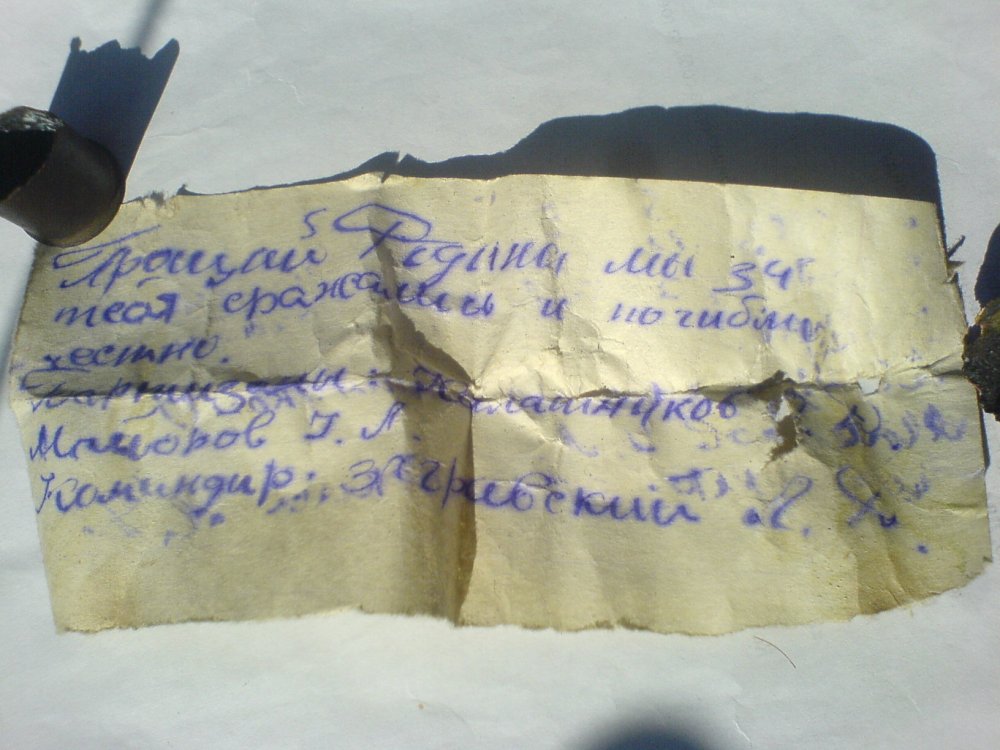 Прощай Родина мы за
тебя сражались и погибли
честно.
Партизаны: Калашников
Майоров
Командир: Загравский